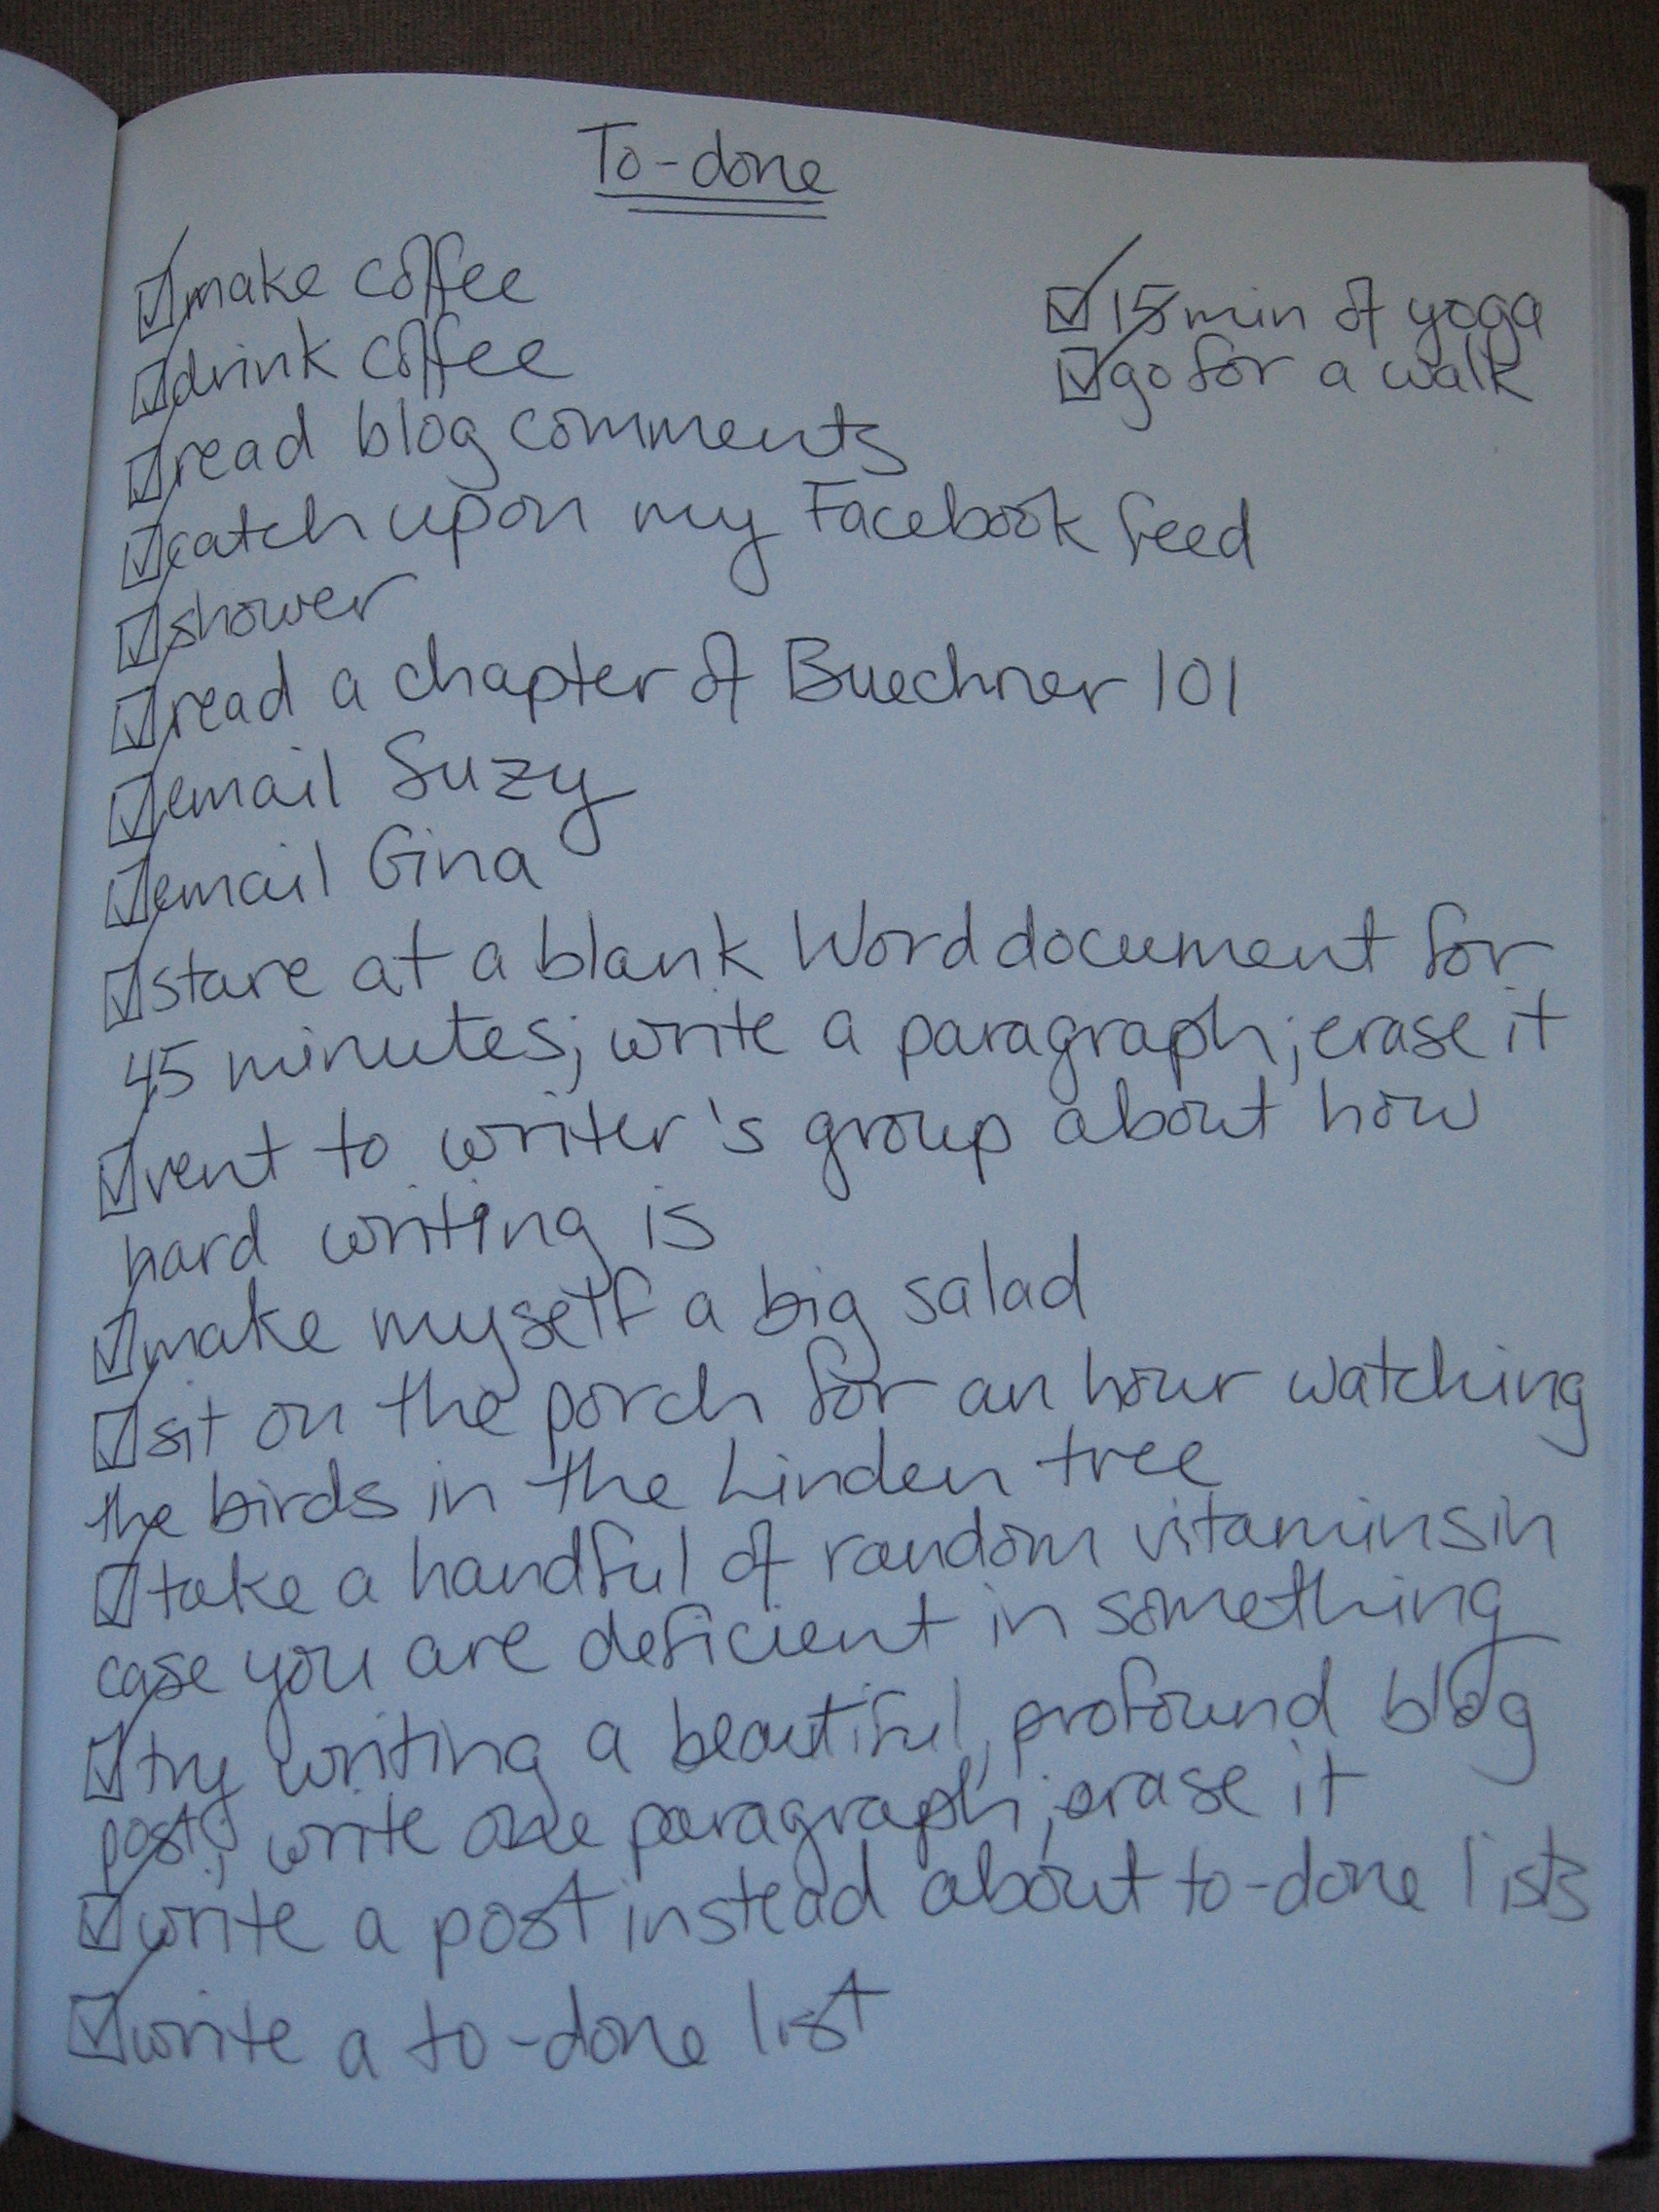 To-done
make coffee
drink coffee
read blog comments
catch up on my Facebook feed
shower
read a chapter of Buechner 101
email Suzy
email Gina
stare at a blank Word document for
45 minutes; write a paragraph; erase it
vent to writer's group about how
hard writing is
make myself a big salad
sit on the porch for an hour watching
the birds in the Linden tree
take a handful of random vitamins in
case you are deficient in something
try writing a beautiful, profound blog
post; write one paragraph; erase it
write a post instead about to-done lists
write a to-done list
15 min of yoga
go for a walk